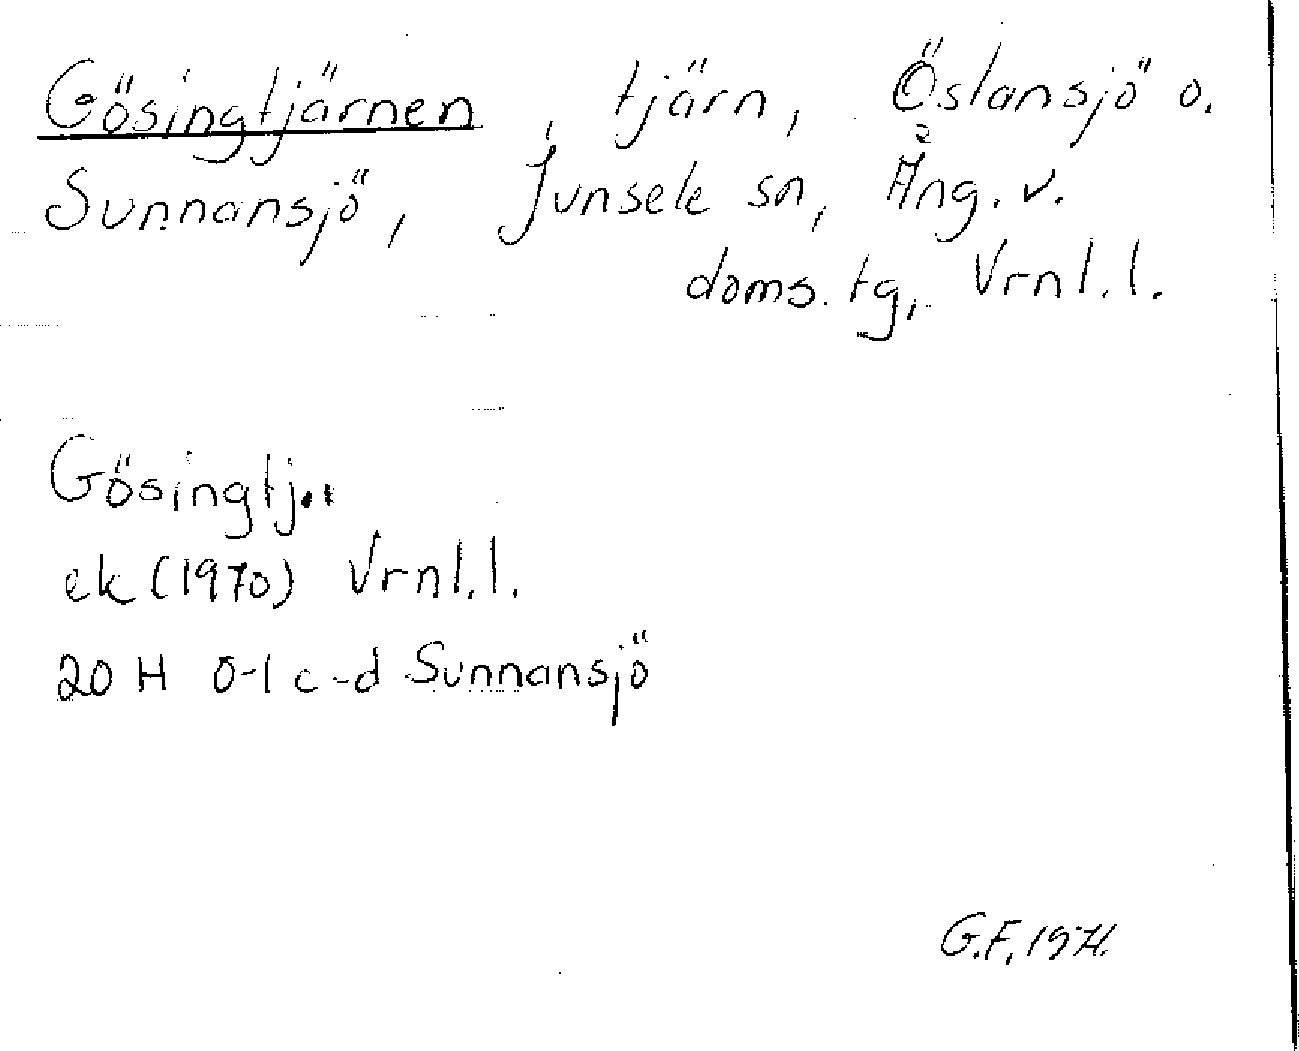 Gösingtjärnen, tjärn, Östansjö o.
Sunnansjö, Junsele sn, Ång. v.
doms. tg, Vrnl.l.
Gösingtj..
ek (1970) Vrnl.l.
20 H 0-1 c-d Sunnansjö
G.F. 1971.